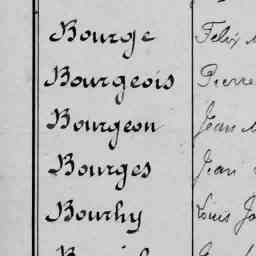 Bourge Felix
Bourgeois Pierre
Bourgeon Jean
Bourges Jean
Bourhy Louis